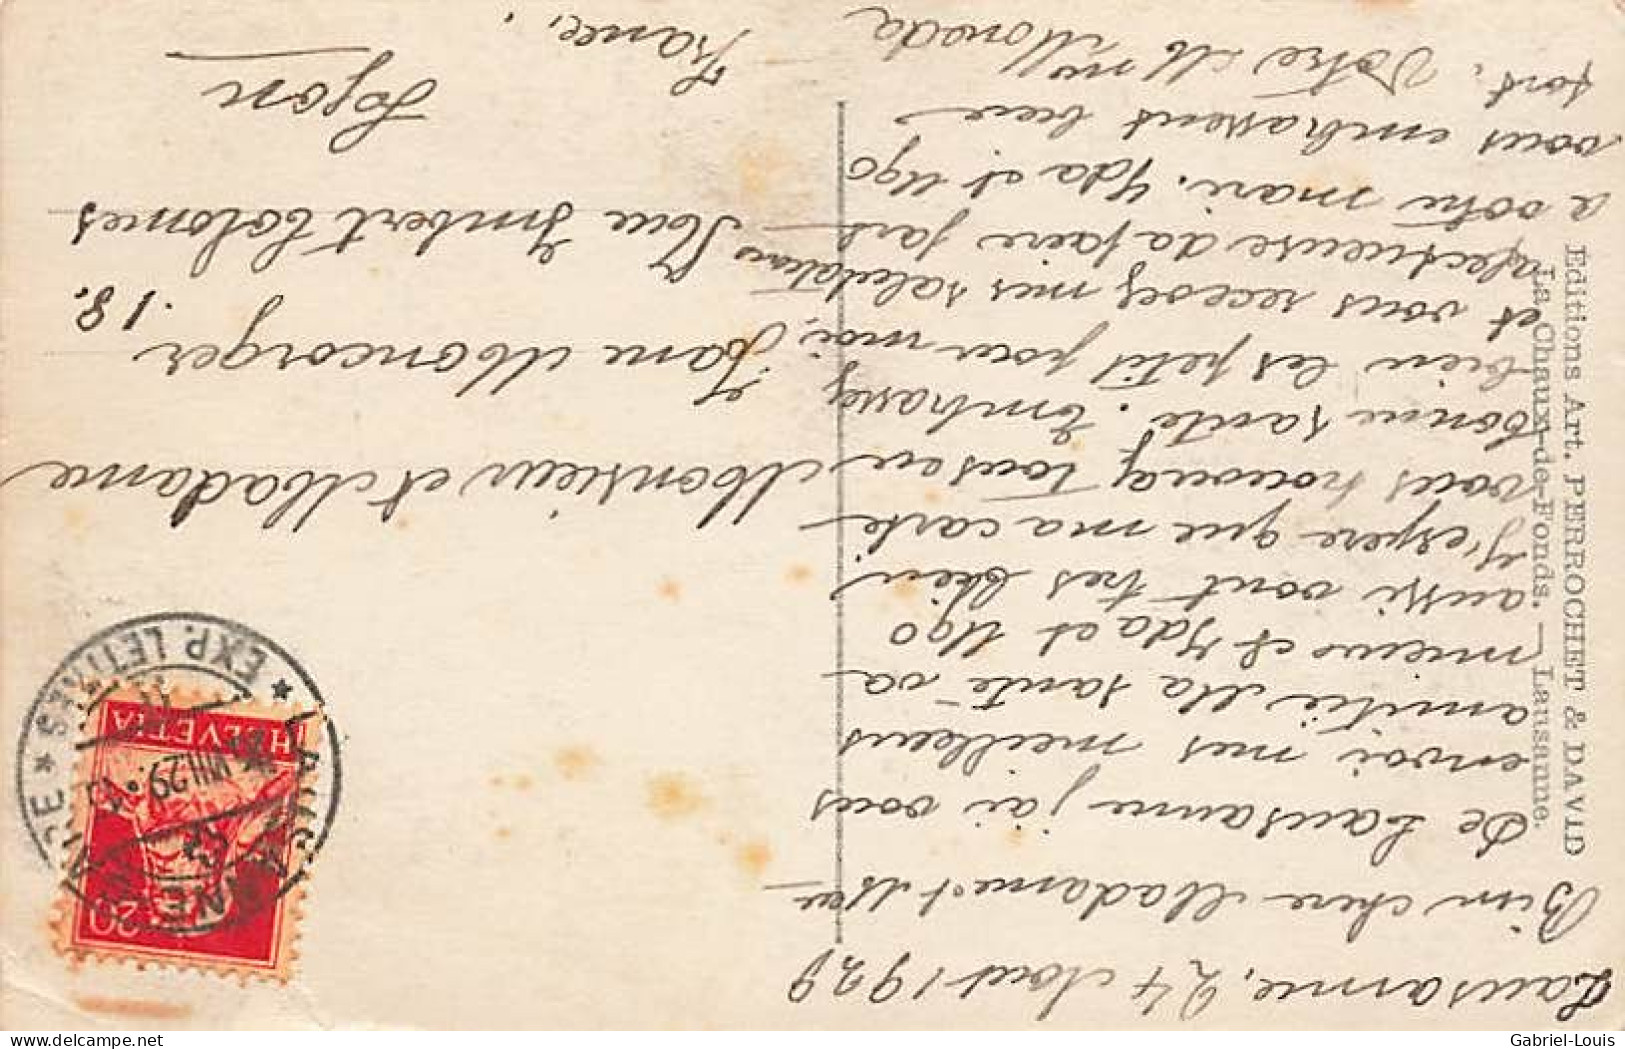 Lausanne, 24 Aout 1929
Bien chere Madame et Mr
De Lausanne j'ai vous
envoi mes meilleurs
amitié Ma santé va
mieux et Yda et Ugo
aussi vont tres bien
J'espere que ma carte
vous trouveraz tous en
bonne santé. Embrassez
bien les petit pour moi,
et vous recevez mes salutations
afectueuse da faire part
a votre mari. Yda et Ugo
vous embrassent bien
fort. Votre Mme Moneda
Monsieur et Madame
Jane Moncorger
18.
Rue Imbert Colomes
Lyon
France.
Editions Art. PERROCHET & DAVID
La Chaux-de-Fonds. — Lausanne.
HELVETIA
20
LAUSANNE
EXP. LETTRES
VIII.29.
Gabriel-Louis